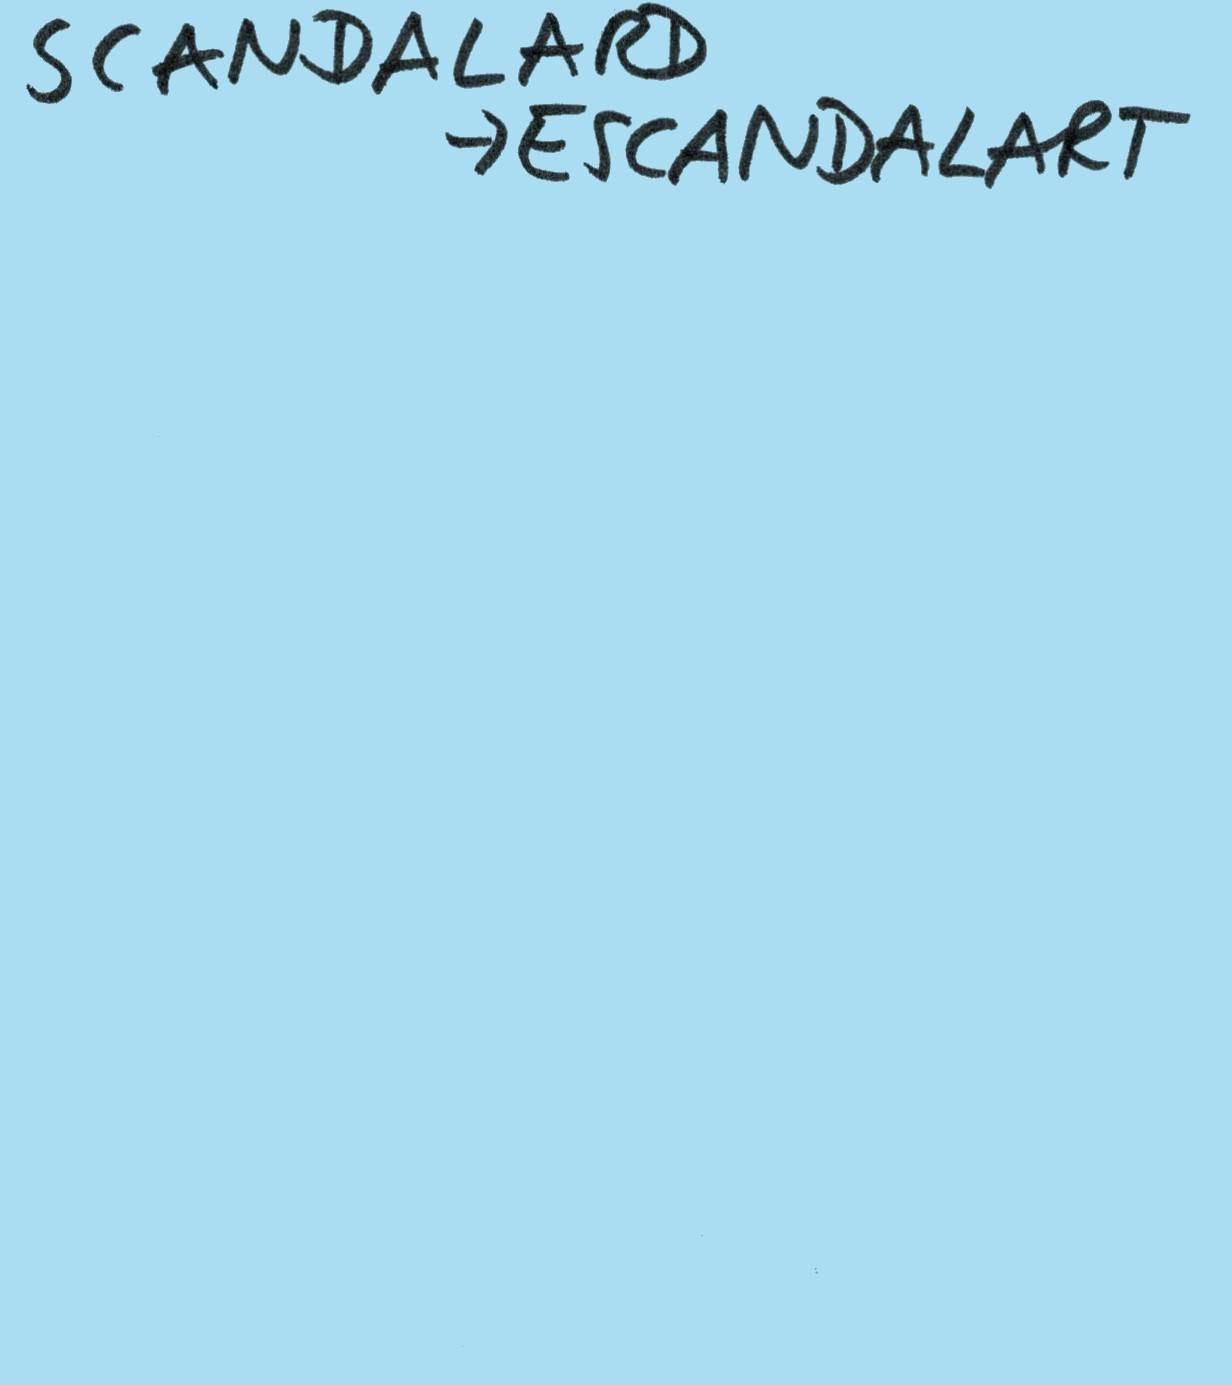 SCANDALARD
→ESCANDALART